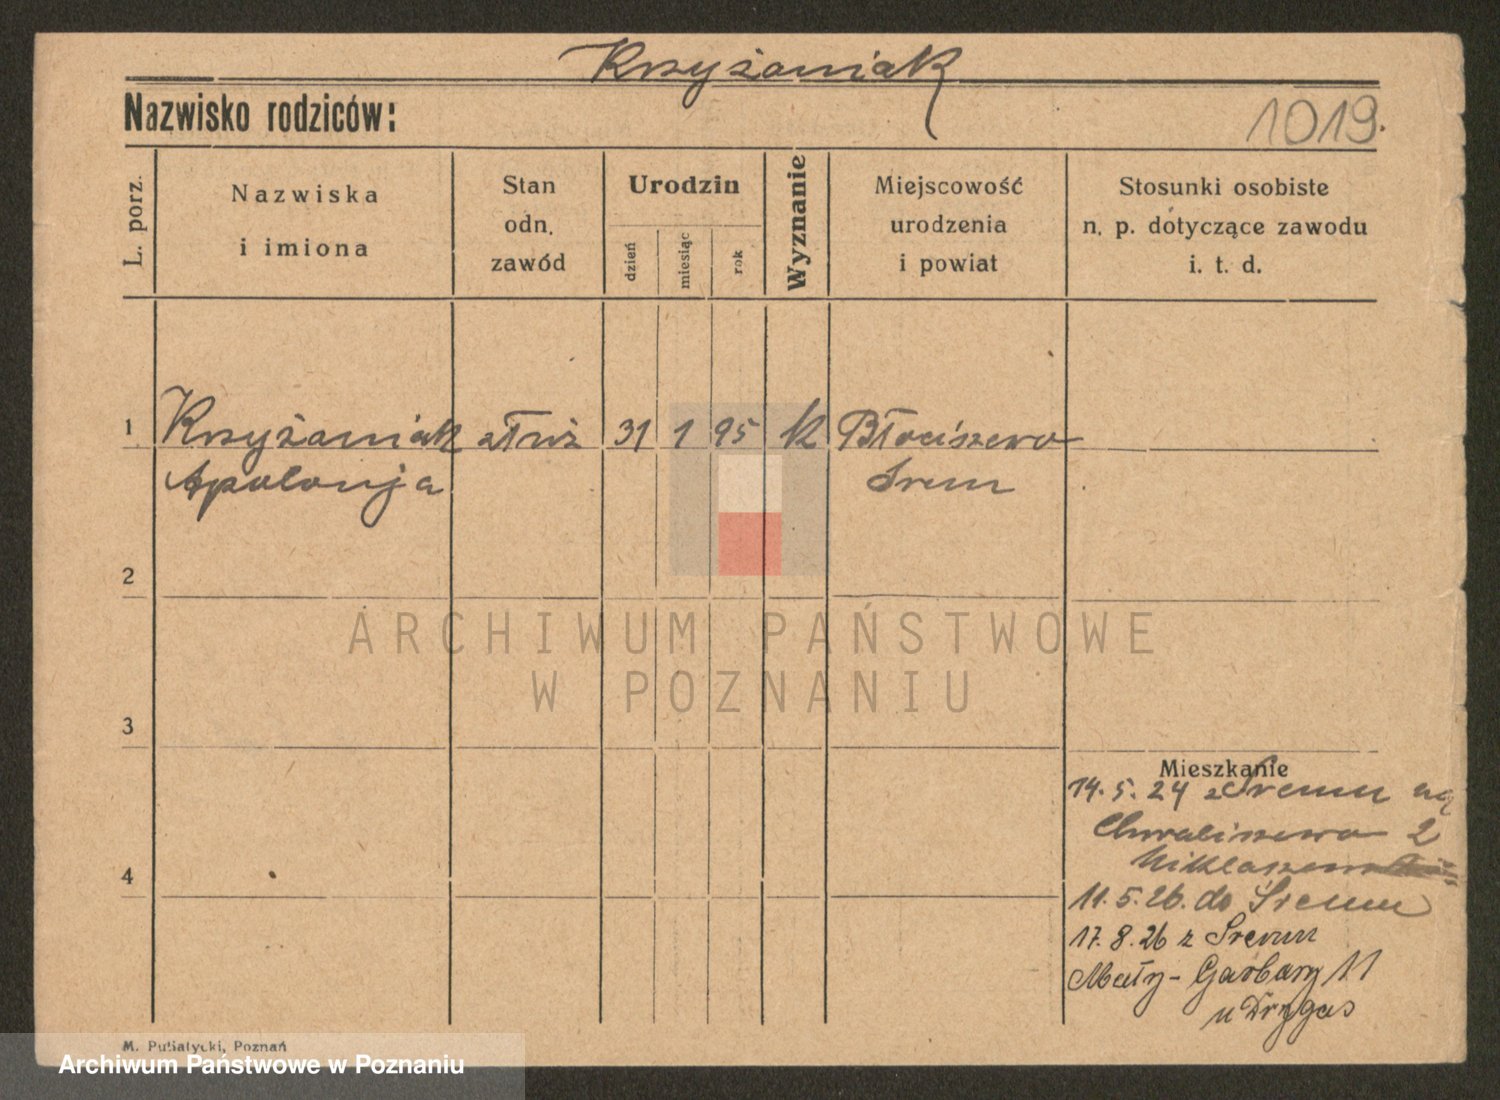 Krzyżaniak
Nazwisko rodziców:
1019.
L. porz.
Nazwiska
i imiona
Stan
odn.
zawód
Urodzin
dzień
miesiąc
rok
Wyznanie
Miejscowość
urodzenia
i powiat
Stosunki osobiste
n. p. dotyczące zawodu
i. t. d.
1 Krzyżaniak służ 31 1 95 k Błociszewo
Apolonja Śrem
2
ARCHIWUM PAŃSTWOWE
W POZNANIU
3
Mieszkanie
14.5.24 z Śremu na
Chwaliszewo 2
4
11.5.26. do Śremu
17.8.26 z Śremu
Mały-Garbary 11
u Drygas
M. Putiatycki, Poznań
Archiwum Państwowe w Poznaniu